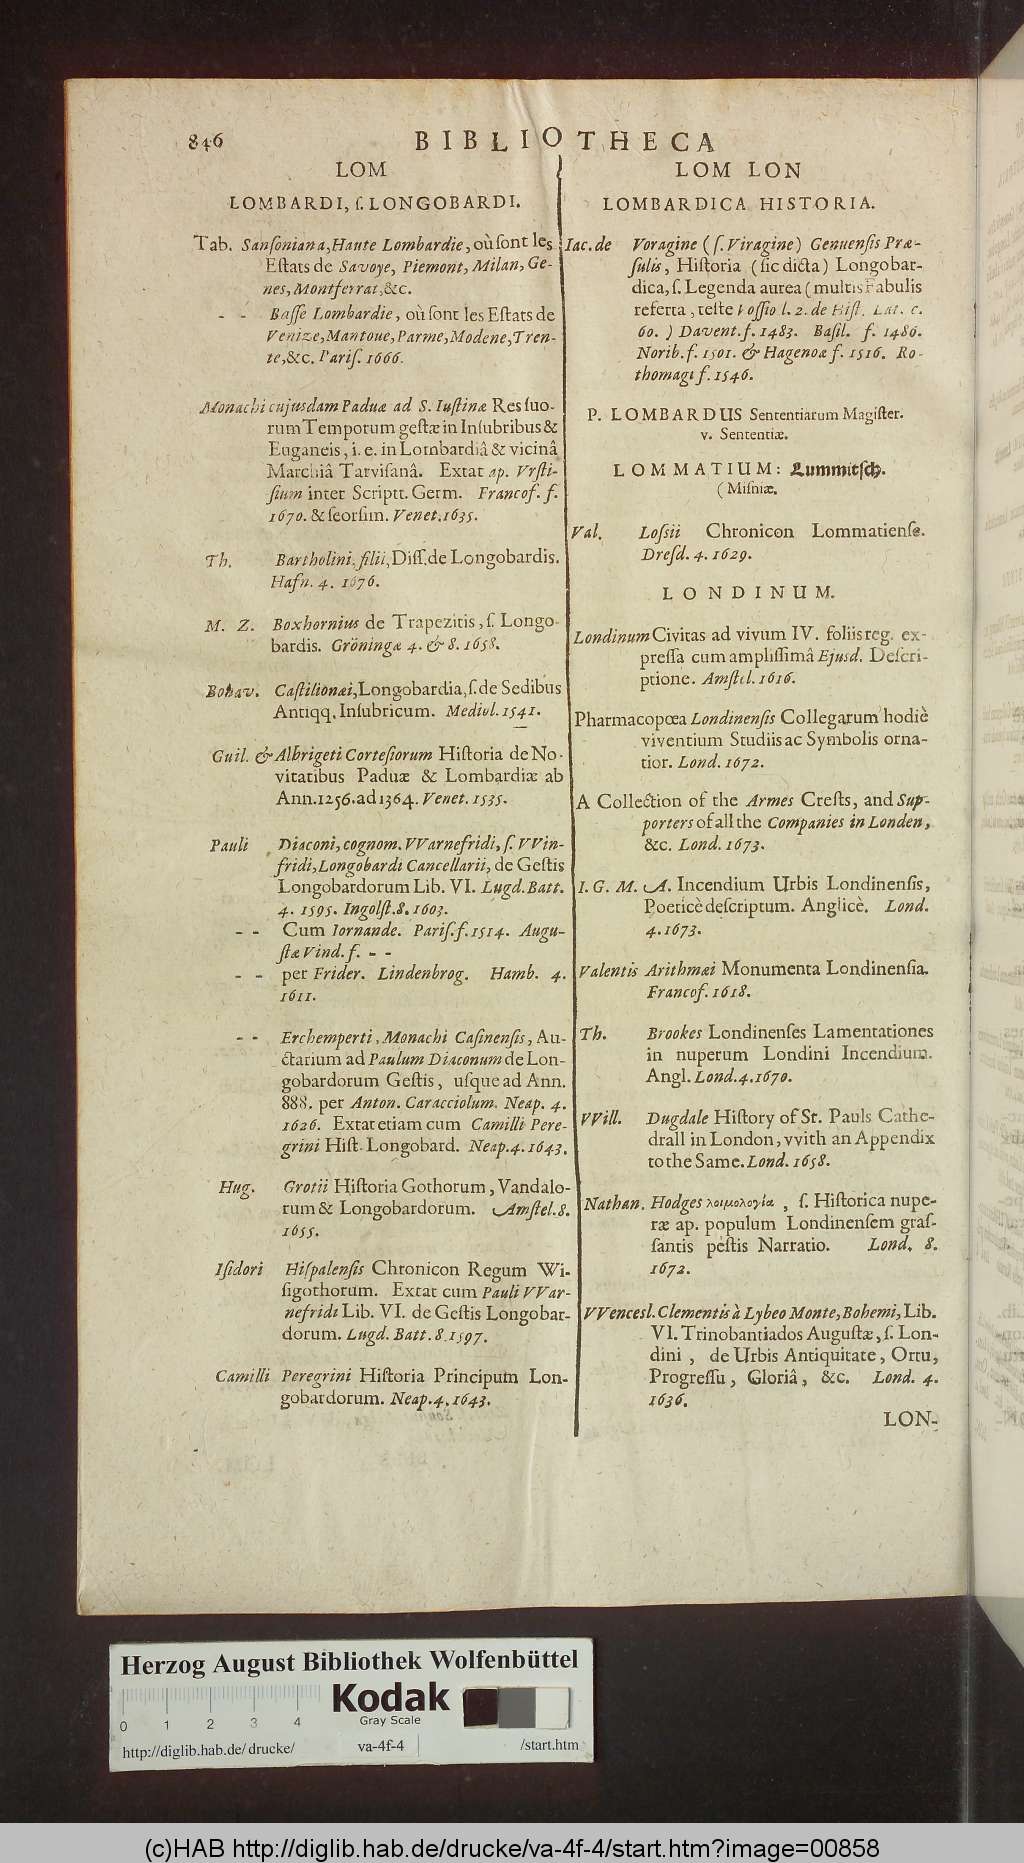 846 BIBLIOTHECA
LOM
LOMBARDI, ſ. LONGOBARDI.
Tab. Sanſoniana, Haute Lombardie, où ſont les
Eſtats de Savoye, Piemont, Milan, Ge-
nes, Montferrat, &c.
- - Baſſe Lombardie, où ſont les Eſtats de
Venize, Mantoue, Parme, Modene, Tren-
te, &c. Pariſ. 1666.
Monachi cujusdam Paduæ ad S. Iuſtinæ Res ſuo-
rum Temporum geſtæ in Inſubribus &
Euganeis, i. e. in Lombardiâ & vicinâ
Marchiâ Tarviſanâ. Extat ap. Vrſti-
ſium inter Scriptt. Germ. Francof. f.
1670. & ſeorſim. Venet. 1635.
Th. Bartholini, filii, Diſſ. de Longobardis.
Hafn. 4. 1676.
M. Z. Boxhornius de Trapezitis, ſ. Longo-
bardis. Gröningæ 4. & 8. 1658.
Bonav. Caſtilionæi, Longobardia, ſ. de Sedibus
Antiqq. Inſubricum. Mediol. 1541.
Guil. & Albrigeti Corteſiorum Hiſtoria de No-
vitatibus Paduæ & Lombardiæ ab
Ann. 1256. ad 1364. Venet. 1535.
Pauli Diaconi, cognom. VVarnefridi, ſ. VVin-
fridi, Longobardi Cancellarii, de Geſtis
Longobardorum Lib. VI. Lugd. Batt.
4. 1595. Ingolſt. 8. 1603.
- - Cum Iornande. Pariſ. f. 1514. Augu-
ſtæ Vind. f. - -
- - per Frider. Lindenbrog. Hamb. 4.
1611.
- - Erchemperti, Monachi Caſinenſis, Au-
ctarium ad Paulum Diaconum de Lon-
gobardorum Geſtis, uſque ad Ann.
888. per Anton. Caracciolum. Neap. 4.
1626. Extat etiam cum Camilli Pere-
grini Hiſt. Longobard. Neap. 4. 1643.
Hug. Grotii Hiſtoria Gothorum, Vandalo-
rum & Longobardorum. Amſtel. 8.
1655.
Iſidori Hiſpalenſis Chronicon Regum Wi-
ſigothorum. Extat cum Pauli VVar-
nefridi Lib. VI. de Geſtis Longobar-
dorum. Lugd. Batt. 8. 1597.
Camilli Peregrini Hiſtoria Principum Lon-
gobardorum. Neap. 4. 1643.
LOM LON
LOMBARDICA HISTORIA.
Iac. de Voragine (ſ. Viragine) Genuenſis Præ-
ſulis, Hiſtoria (ſic dicta) Longobar-
dica, ſ. Legenda aurea (multis Fabulis
referta, teſte Voſſio l. 2. de Hiſt. Lat. c.
60.) Davent. f. 1483. Baſil. f. 1486.
Norib. f. 1501. & Hagenoæ f. 1516. Ro-
thomagi f. 1546.
P. LOMBARDUS Sententiarum Magiſter.
v. Sententiæ.
LOMMATIUM: Lummitſch.
(Miſniæ.
Val. Loſſii Chronicon Lommatienſe.
Dreſd. 4. 1629.
LONDINUM.
Londinum Civitas ad vivum IV. foliis reg. ex-
preſſa cum ampliſſimâ Ejusd. Deſcri-
ptione. Amſtel. 1616.
Pharmacopœa Londinenſis Collegarum hodiè
viventium Studiis ac Symbolis orna-
tior. Lond. 1672.
A Collection of the Armes Creſts, and Sup-
porters of all the Companies in Londen,
&c. Lond. 1673.
I. G. M. A. Incendium Urbis Londinenſis,
Poeticè deſcriptum. Anglicè. Lond.
4. 1673.
Valentis Arithmæi Monumenta Londinenſia.
Francof. 1618.
Th. Brookes Londinenſes Lamentationes
in nuperum Londini Incendium.
Angl. Lond. 4. 1670.
VVill. Dugdale Hiſtory of St. Pauls Cathe-
drall in London, vvith an Appendix
to the Same. Lond. 1658.
Nathan. Hodges λοιμολογία, ſ. Hiſtorica nupe-
ræ ap. populum Londinenſem graſ-
ſantis peſtis Narratio. Lond. 8.
1672.
VVencesl. Clementis à Lybeo Monte, Bohemi, Lib.
VI. Trinobantiados Auguſtæ, ſ. Lon-
dini, de Urbis Antiquitate, Ortu,
Progreſſu, Gloriâ, &c. Lond. 4.
1636.
LON-
Herzog August Bibliothek Wolfenbüttel
Kodak
Gray Scale
0 1 2 3 4
http://diglib.hab.de/drucke/ va-4f-4 /start.htm
(c)HAB http://diglib.hab.de/drucke/va-4f-4/start.htm?image=00858